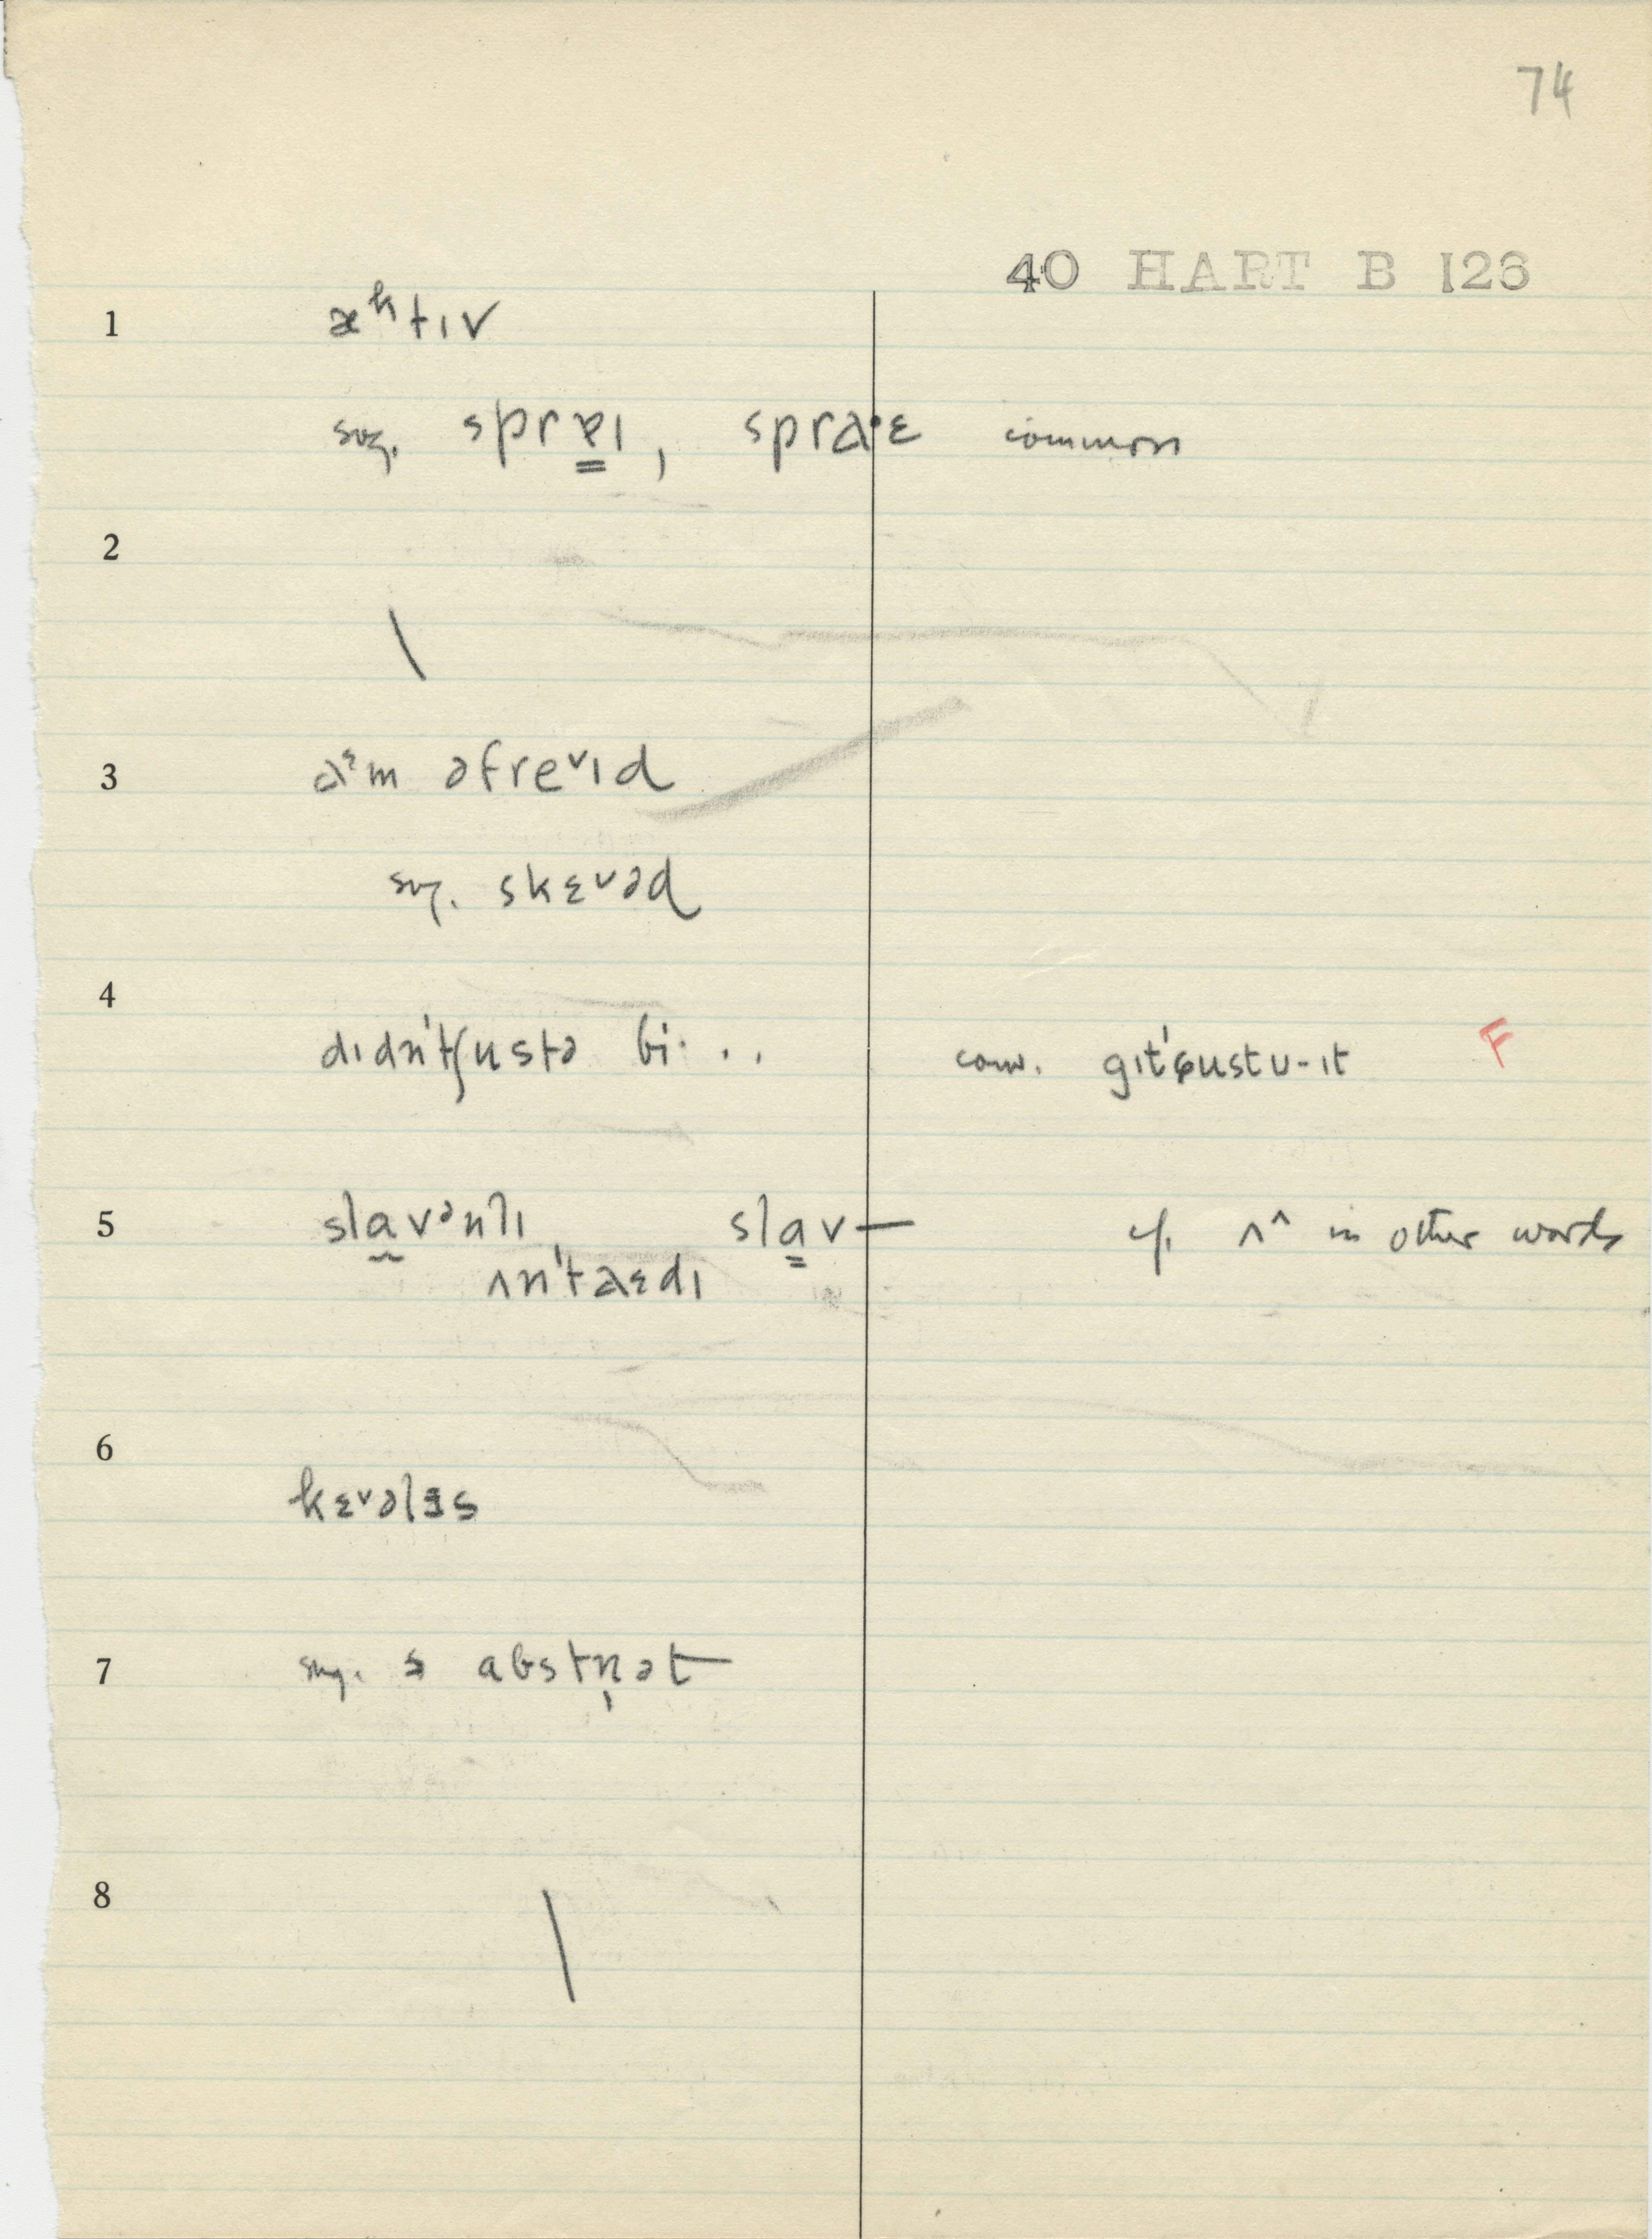 74
40 HART B 126
1 æᵏtɪv
sug. sprɐ̳ɪ, spra·ɛ common
2
\
3 aᵋm əfreᵛɪd
sug. skɛᵛəd
4
dɪdn'tʃustə bi· .. conv. gɪt'ɕustu-ɪt F
5 sla̰vᵊnlɪ, sla̳v— cf. ʌ^ in other words
ʌn'taɛdɪ
6
kɛᵛəlɛs
7 sug. abstn̩ət
8
\